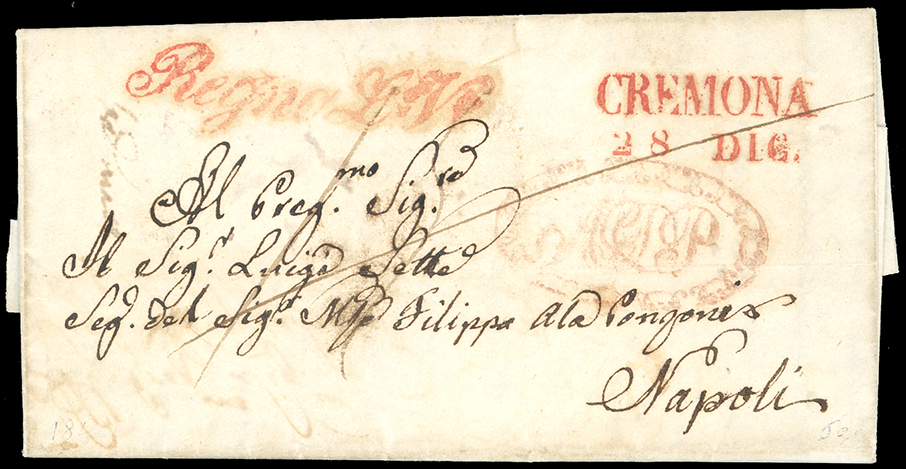 Regno L:V:
CREMONA
28 DIC.
Al Preg.mo Sig.re
Il Sig.r Luigi Sette
Seg. del Sig.r Mse Filippo Ala Ponzonis
Napoli